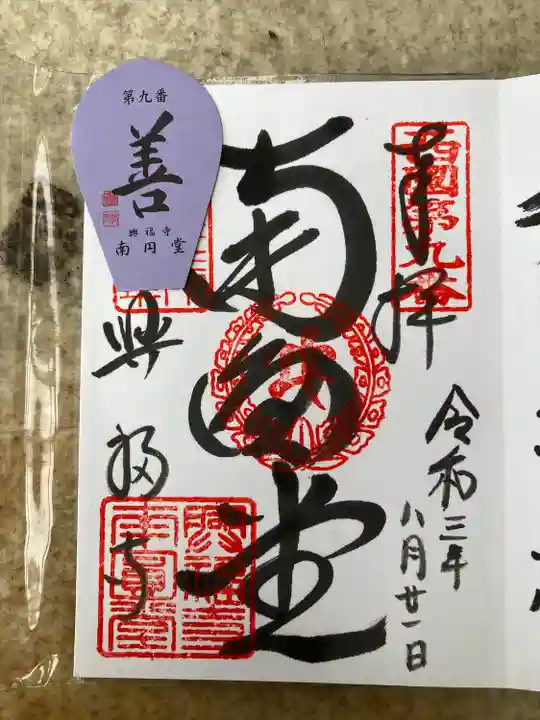 奉拝
西国第九番
令和三年
八月廿一日
南円堂
興福寺
第九番
善
興福寺
南円堂